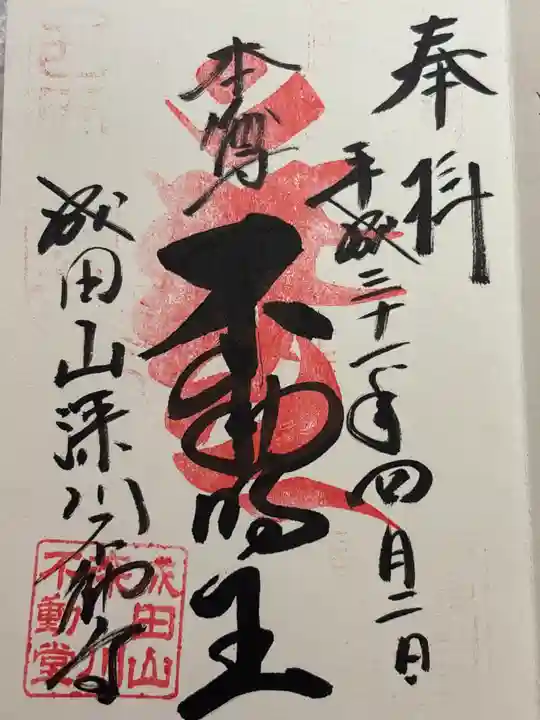 奉拝
平成三十一年四月二日
本尊
不動明王
成田山深川不動堂
成田山
深川
不動堂